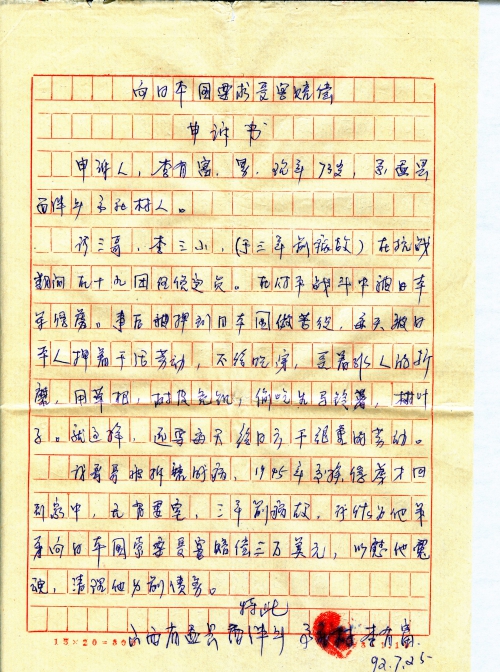 向日本国要求受害赔偿
申诉书
申诉人，李有富，男，现年73岁，系盂县
西潘乡 村人。
我三哥，李三小，(于三年前病故) 在抗战
期间在十九团任侦 员。在 战斗中被日本
军俘虏。事后被押到日本国做苦役，每天被日
本人押着干活劳动，不给吃穿，受着 人的折
磨，用草根，树皮充饥，偷吃 ，树叶
子。就这样，还要每天给日方干很重的劳动。
我哥哥被折 ，1945年 才回
到家中，无有妻室，三年前病故，我做为他弟
弟向日本国索要受害赔偿三万美元，以慰他灵
魂，清理他生前债务。
特此
山西省盂县西潘乡 村 李有富
15×20=300
92.7.25